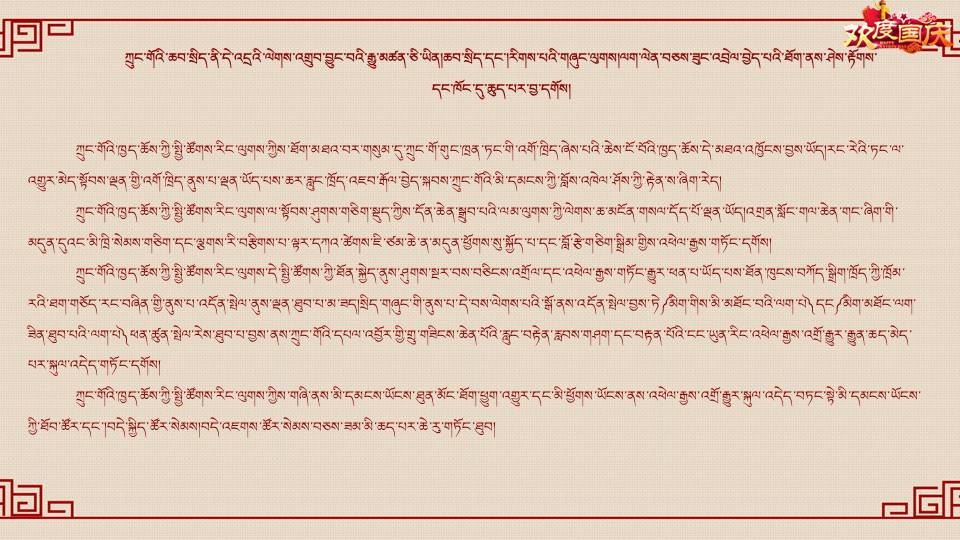 欢度国庆
ཀྲུང་གོའི་ཆབ་སྲིད་ནི་དེ་འདྲའི་ལེགས་འགྲུབ་བྱུང་བའི་རྒྱུ་མཚན་ཅི་ཡིན།ཆབ་སྲིད་དང་།རིགས་པའི་གཞུང་ལུགས།ལག་ལེན་བཅས་ཟུང་འབྲེལ་བྱེད་པའི་ཐོག་ནས་ཤེས་རྟོགས་
དང་ཁོང་དུ་ཆུད་པར་བྱ་དགོས།
ཀྲུང་གོའི་ཁྱད་ཆོས་ཀྱི་སྤྱི་ཚོགས་རིང་ལུགས་ཀྱིས་ཐོག་མཐའ་བར་གསུམ་དུ་ཀྲུང་གོ་གུང་ཁྲན་ཏང་གི་འགོ་ཁྲིད་ཞེས་པའི་ཆེས་ངོ་བོའི་ཁྱད་ཆོས་དེ་མཐའ་འཁྱོངས་བྱས་ཡོད།རང་རེའི་ཏང་ལ་
འགྱུར་མེད་སྟོབས་ལྡན་གྱི་འགོ་ཁྲིད་ནུས་པ་ལྡན་ཡོད་པས་ཆར་རླུང་ཁྲོད་འཇབ་རྒོལ་བྱེད་སྐབས་ཀྲུང་གོའི་མི་དམངས་ཀྱི་བློས་འཁེལ་ཤོས་ཀྱི་རྟེན་ས་ཞིག་རེད།
ཀྲུང་གོའི་ཁྱད་ཆོས་ཀྱི་སྤྱི་ཚོགས་རིང་ལུགས་ལ་སྟོབས་ཤུགས་གཅིག་སྡུད་ཀྱིས་དོན་ཆེན་སྒྲུབ་པའི་ལམ་ལུགས་ཀྱི་ལེགས་ཆ་མངོན་གསལ་དོད་པོ་ལྡན་ཡོད།འགྲན་སློང་གལ་ཆེན་གང་ཞིག་གི་
མདུན་དུའང་མི་ཁྲི་སེམས་གཅིག་དང་ལྕགས་རི་བརྩིགས་པ་ལྟར་དཀའ་ཚེགས་ཇི་ཙམ་ཆེ་ན་མདུན་ཕྱོགས་སུ་སྐྱོད་པ་དང་བློ་རྩེ་གཅིག་སྒྲིམ་གྱིས་འཕེལ་རྒྱས་གཏོང་དགོས།
ཀྲུང་གོའི་ཁྱད་ཆོས་ཀྱི་སྤྱི་ཚོགས་རིང་ལུགས་དེ་སྤྱི་ཚོགས་ཀྱི་ཐོན་སྐྱེད་ནུས་ཤུགས་སྔར་བས་བཅིངས་འགྲོལ་དང་འཕེལ་རྒྱས་གཏོང་རྒྱུར་ཕན་པ་ཡོད་པས་ཐོན་ཁུངས་བཀོད་སྒྲིག་ཁྲོད་ཀྱི་ཁྲོམ་
རའི་ཐག་གཅོད་རང་བཞིན་གྱི་ནུས་པ་འདོན་སྤེལ་ནུས་ལྡན་ཐུབ་པ་མ་ཟད།སྲིད་གཞུང་གི་ནུས་པ་དེ་བས་ལེགས་པའི་སྒོ་ནས་འདོན་སྤེལ་བྱས་ཏེ༼མིག་གིས་མི་མཐོང་བའི་ལག་པ༽དང་༼མིག་མཐོང་ལག་
ཟིན་ཐུབ་པའི་ལག་པ༽ཕན་ཚུན་སྤེལ་རེས་ཐུབ་པ་བྱས་ནས་ཀྲུང་གོའི་དཔལ་འབྱོར་གྱི་གྲུ་གཟིངས་ཆེན་པོའི་རླུང་བརྟེན་རླབས་གཤག་དང་བརྟན་པོའི་ངང་ཡུན་རིང་འཕེལ་རྒྱས་འགྲོ་རྒྱུར་རྒྱུན་ཆད་མེད་
པར་སྐུལ་འདེད་གཏོང་དགོས།
ཀྲུང་གོའི་ཁྱད་ཆོས་ཀྱི་སྤྱི་ཚོགས་རིང་ལུགས་ཀྱིས་གཞི་ནས་མི་དམངས་ཡོངས་ཐུན་མོང་ཐོག་ཕྱུག་འགྱུར་དང་མི་ཕྱོགས་ཡོངས་ནས་འཕེལ་རྒྱས་འགྲོ་རྒྱུར་སྐུལ་འདེད་བཏང་སྟེ་མི་དམངས་ཡོངས་
ཀྱི་ཐོབ་ཚོར་དང་།བདེ་སྐྱིད་ཚོར་སེམས།བདེ་འཇགས་ཚོར་སེམས་བཅས་ཟམ་མི་ཆད་པར་ཆེ་རུ་གཏོང་ཐུབ།